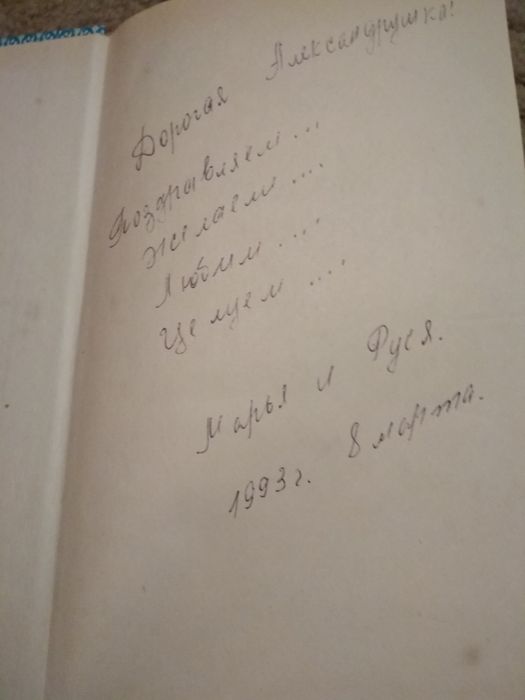 Дорогая Александрушка!
Поздравляем...
Желаем...
Любим....
Целуем....
Марья и Руся.
1993г. 8 марта.